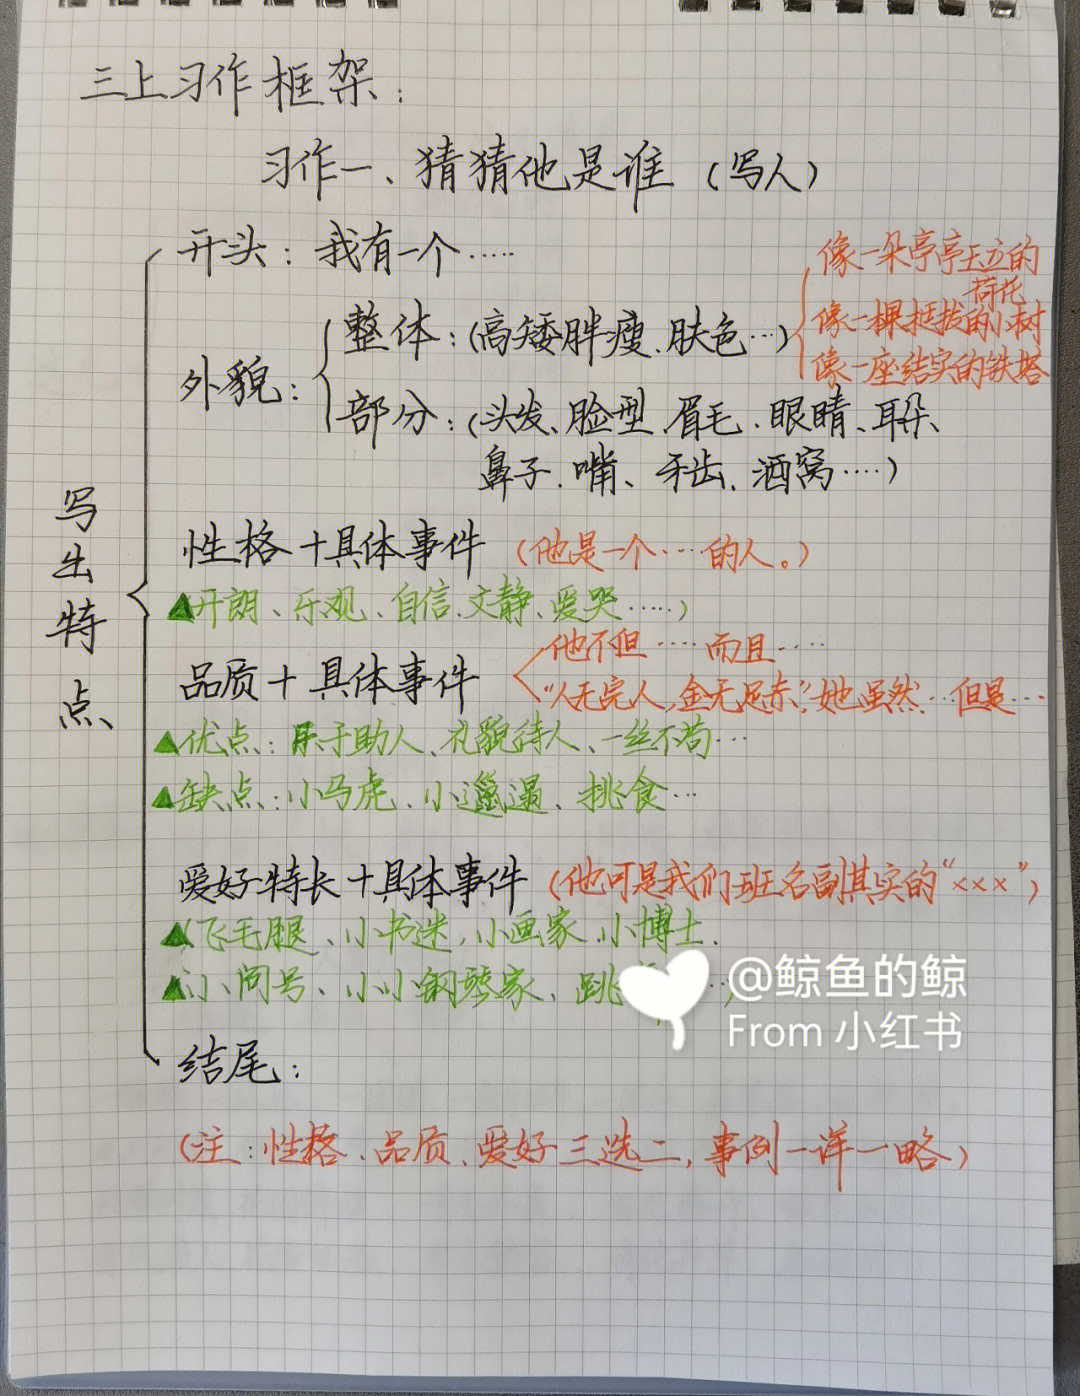 三上习作框架:
习作一、猜猜他是谁(写人)
写出特点
开头:我有一个……
外貌:
整体:(高矮胖瘦、肤色…)
像一朵亭亭玉立的荷花
像一棵挺拔的小树
像一座结实的铁塔
部分:(头发、脸型、眉毛、眼睛、耳朵、
鼻子、嘴、牙齿、酒窝……)
性格+具体事件 (他是一个……的人。)
(开朗、乐观、自信、文静、爱哭……)
品质+具体事件
他不但……而且……
“人无完人,金无足赤”,她虽然…但是…
优点:乐于助人、礼貌待人、一丝不苟…
缺点:小马虎、小邋遢、挑食…
爱好特长+具体事件 (他可是我们班名副其实的“×××”)
(飞毛腿、小书迷、小画家、小博士、
小问号、小小钢琴家、跳
结尾:
(注:性格、品质、爱好三选二,事例一详一略)
@鲸鱼的鲸
From 小红书